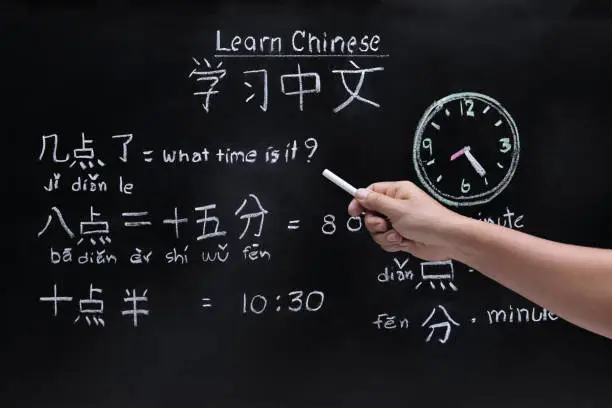 Learn Chinese
学习中文
几点了 = what time is it?
jǐ diǎn le
八点二十五分 = 80
bā diǎn èr shí wǔ fēn
十点半 = 10:30
12
9 3
6
minute
diǎn 点 =
fēn 分 = minute